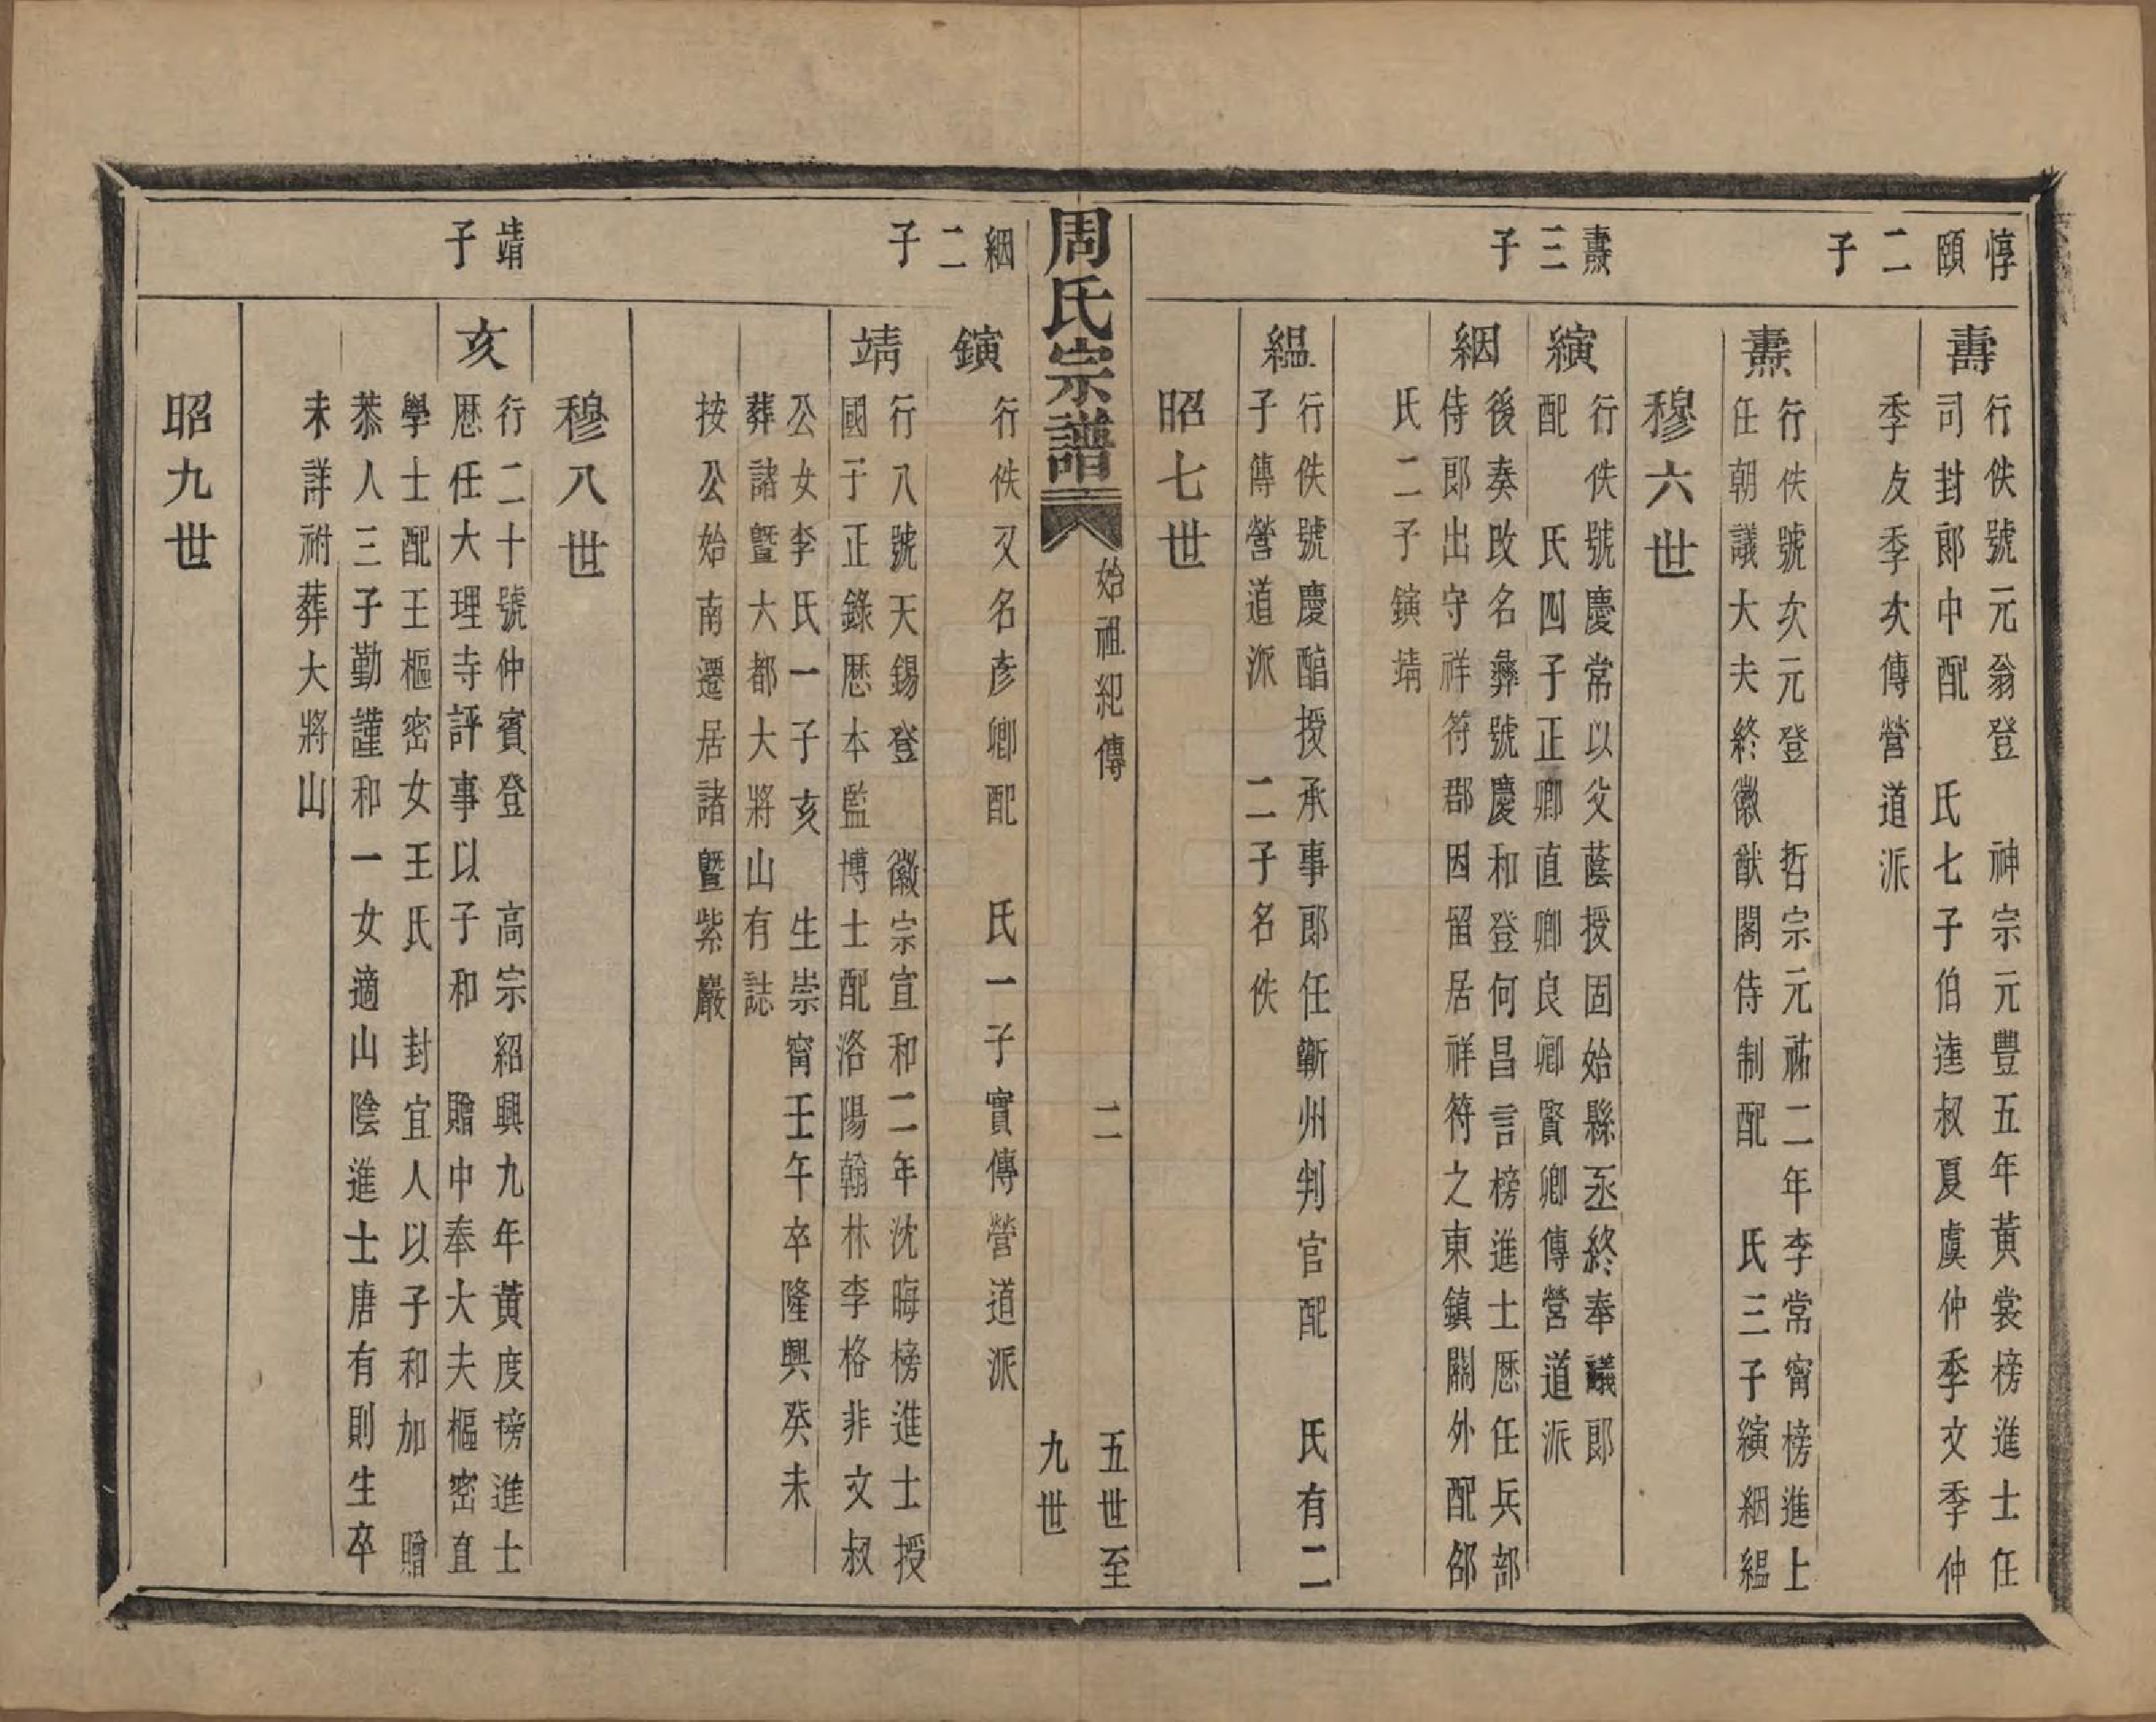 惇頤二子
壽
行佚號元翁登　神宗元豐五年黃裳榜進士任
司封郎中配　氏七子伯逵叔夏虞仲季文季仲
季友季次傳營道派
燾
行佚號次元登　哲宗元祐二年李常甯榜進士
任朝議大夫終徽猷閣侍制配　氏三子縯絪縕
穆六世
燾三子
縯
行佚號慶常以父蔭授固始縣丞終奉議郎
配　氏四子正卿直卿良卿賢卿傳營道派
絪
後奏改名彝號慶和登何昌言榜進士歷任兵部
侍郎出守祥符郡因留居祥符之東鎮關外配邵
氏二子鏔靖
縕
行佚號慶醕授承事郎任蘄州判官配　氏有二
子傳營道派　二子名佚
昭七世
周氏宗譜
始祖紀傳
二
五世至
九世
絪二子
鏔
行佚又名彥卿配　氏一子實傳營道派
靖
行八號天錫登　徽宗宣和二年沈晦榜進士授
國子正錄歷本監博士配洛陽翰林李格非文叔
公女李氏一子亥　生崇甯壬午卒隆興癸未
葬諸暨大都大將山有誌
按公始南遷居諸暨紫巖
穆八世
靖子
亥
行二十號仲賓登　高宗紹興九年黃度榜進士
歷任大理寺評事以子和　贈中奉大夫樞密直
學士配王樞密女王氏　封宜人以子和加　贈
恭人三子勤謹和一女適山陰進士唐有則生卒
未詳祔葬大將山
昭九世